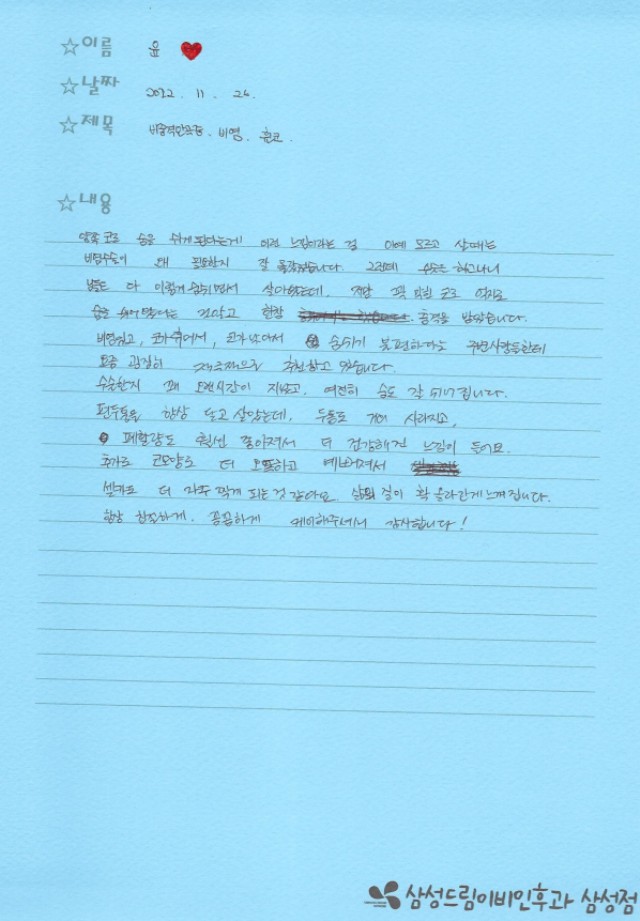 ☆이름 윤
☆날짜 2022. 11. 26.
☆제목 비중격만곡증. 비염. 휜코.
☆내용
양쪽 코로 숨을 쉬게 된다는게 이런 느낌이라는 걸 아예 모르고 살때는
비염수술이 왜 필요한지 잘 몰랐었습니다. 그런데 수술을 하고나니
남들은 다 이렇게 숨쉬면서 살아왔는데, 저만 꽉 막힌 코로 억지로
숨을 쉬어 왔다는 것 같고 한참 충격을 받았습니다.
비염있고, 코가 휘어서, 코가 낮아서 숨쉬기 불편하다는 주변사람들한테
요즘 굉장히 적극적으로 추천하고 있습니다.
수술한지 꽤 오랜시간이 지났고, 여전히 숨도 잘 쉬어집니다.
편두통을 항상 달고 살았는데, 두통도 거의 사라지고,
폐활량도 훨씬 좋아져서 더 건강해진 느낌이 들어요.
추가로 코모양도 더 오똑하고 예뻐져서
셀카도 더 자주 찍게 되는것 같아요. 삶의 질이 확 올라간게 느껴집니다.
항상 친절하게. 꼼꼼하게 케어해주셔서 감사합니다!
삼성드림이비인후과 삼성점